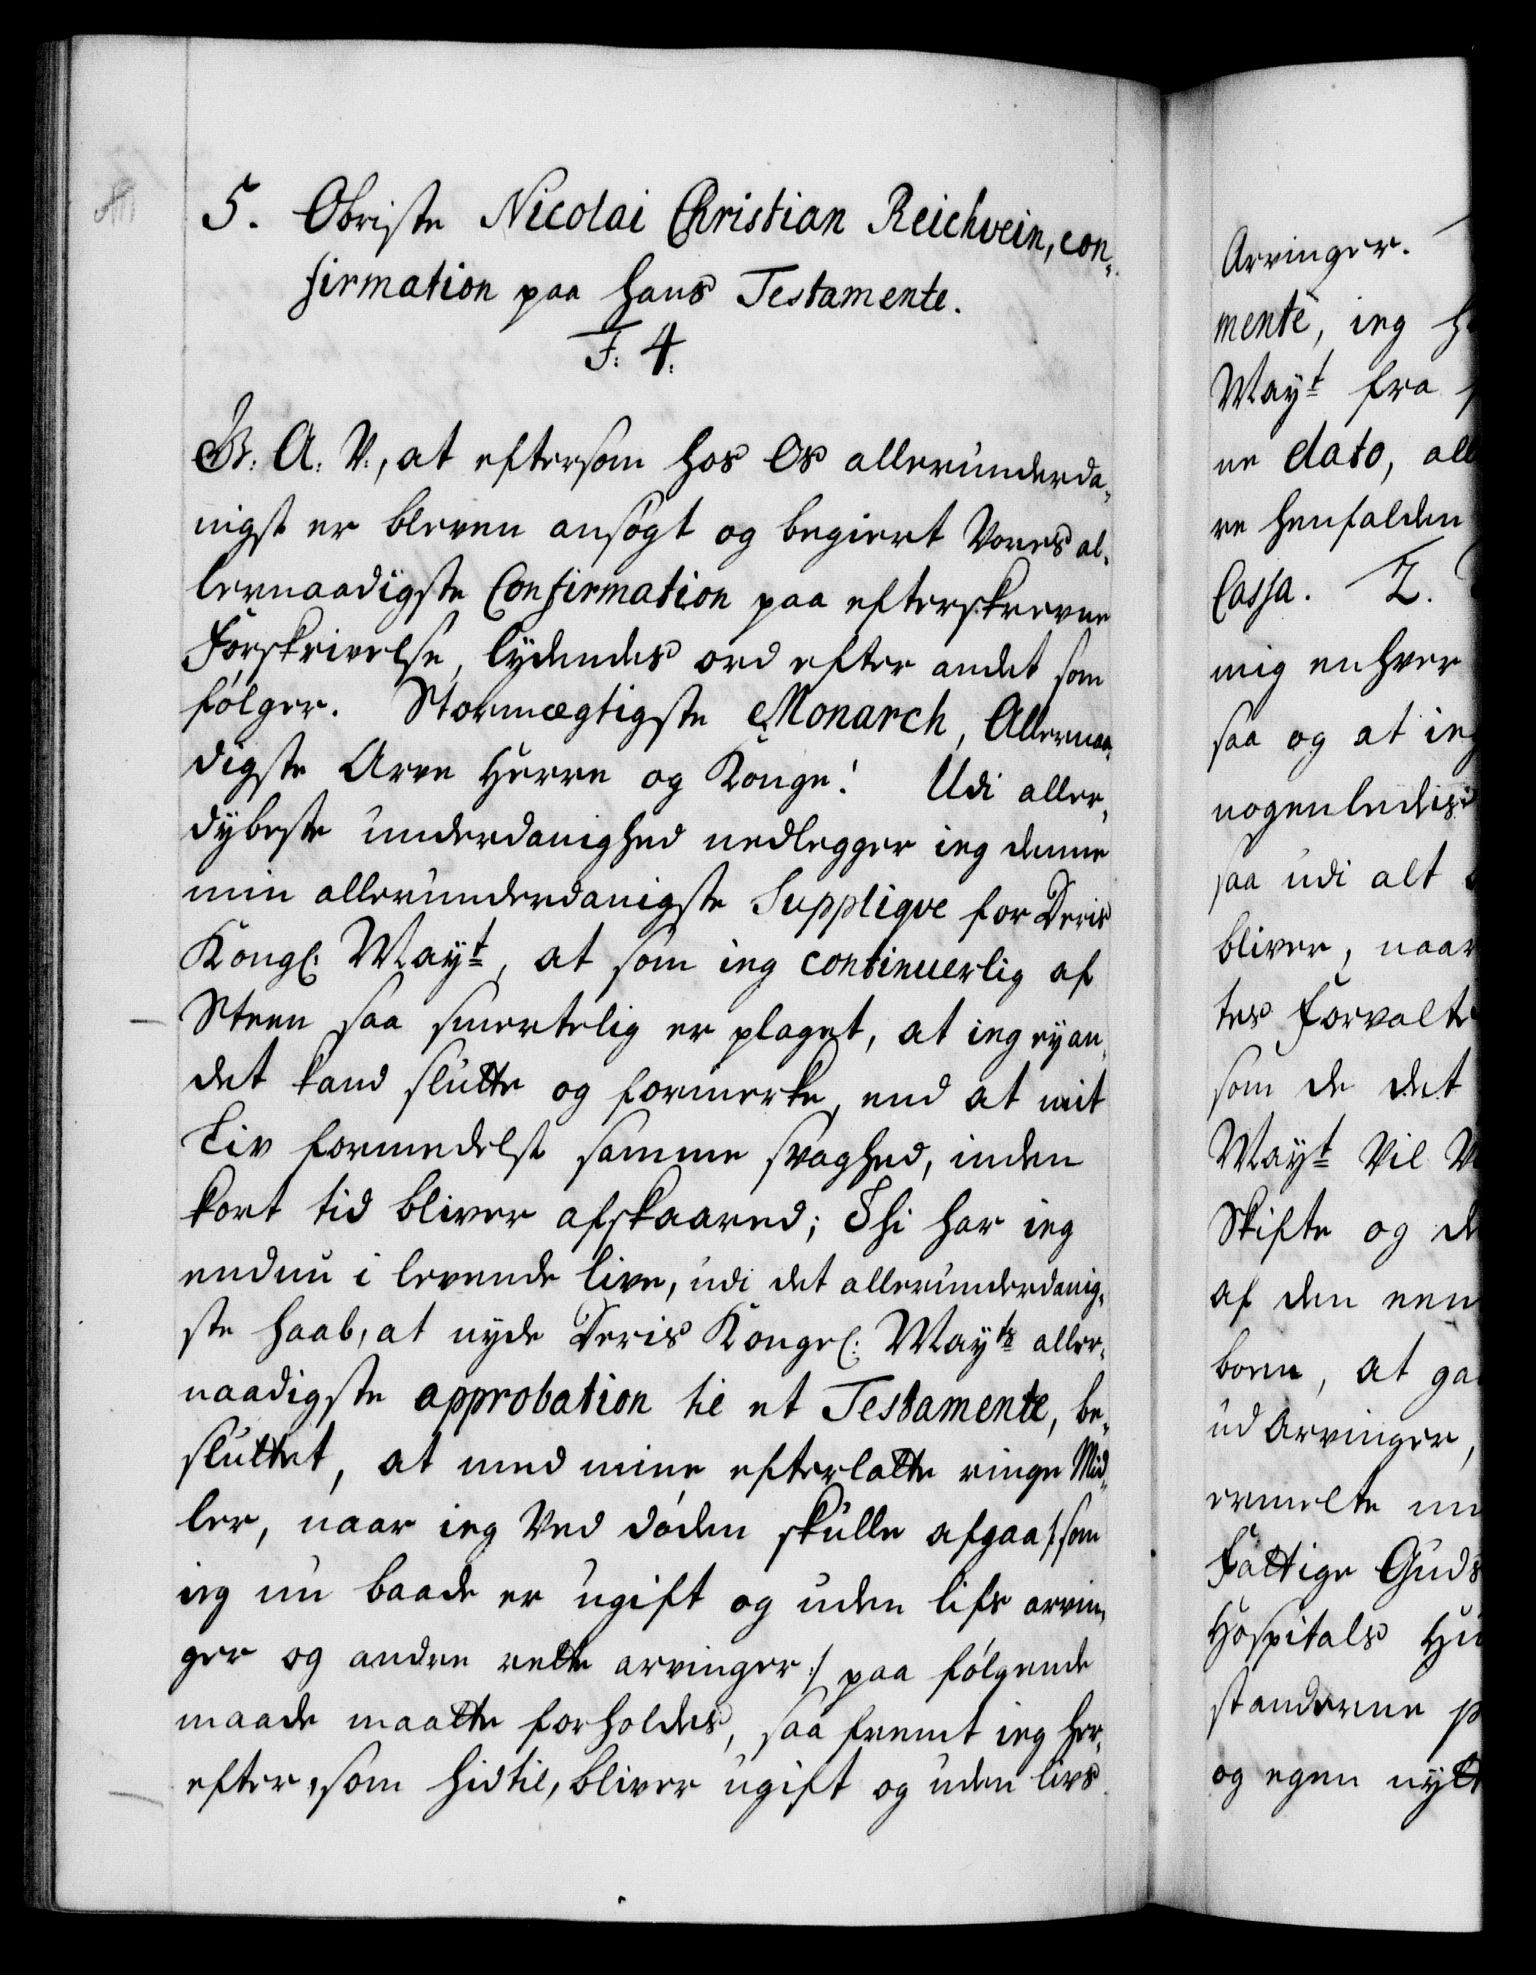 5. Obriste Nicolai Christian Reichvein, con-
firmation paa hans Testamente.
F: 4.
G: A: V:, at eftersom hos Os allerunderda-
nigst er bleven ansøgt og begiert Vores al-
lernaadigste Confirmation paa efterskrevne
Forskrivelse, lydendes ord efter andet som
følger. Stormægtigste Monarch, Allernaa-
digste Arve Herre og Konge! Udi aller-
dybeste underdanighed nedlegger ieg denne
min allerunderdanigste Suppliqve for Deris
Kongl: Mayt, at som ieg continuerlig af
Steen saa smertelig er plaget, at ieg ey an-
det kand slutte og formerke, end at mit
Liv formedelst samme svaghed, inden
kort tid bliver afskaared; Thi har ieg
endnu i levende live, udi det allerunderdanig-
ste haab, at nyde Deris Kongel: Mayts aller-
naadigste approbation til et Testamente, be-
sluttet, at med mine efterlatte ringe Mid-
ler, naar ieg Ved døden skulle afgaa /: som
ieg nu baade er ugift og uden lifs arvin-
ger og andre rette arvinger :/ paa følgende
maade maatte forholdes, saa fremt ieg her-
efter, som hidtil, bliver ugift og uden livs
Arvinger.
mente, ieg
Mayt fra
ne dato, all
re henfalden
Cassa. 2.
mig enhver
saa og at ieg
nogenledis
saa udi alt
bliver, naar
tes Forvalte
som de det
Mayt Vil
Skifte og
af den een
born, at
ud Arvinger,
ermelte
Fattige Guds
Hospitals
standerne
og egen nytt